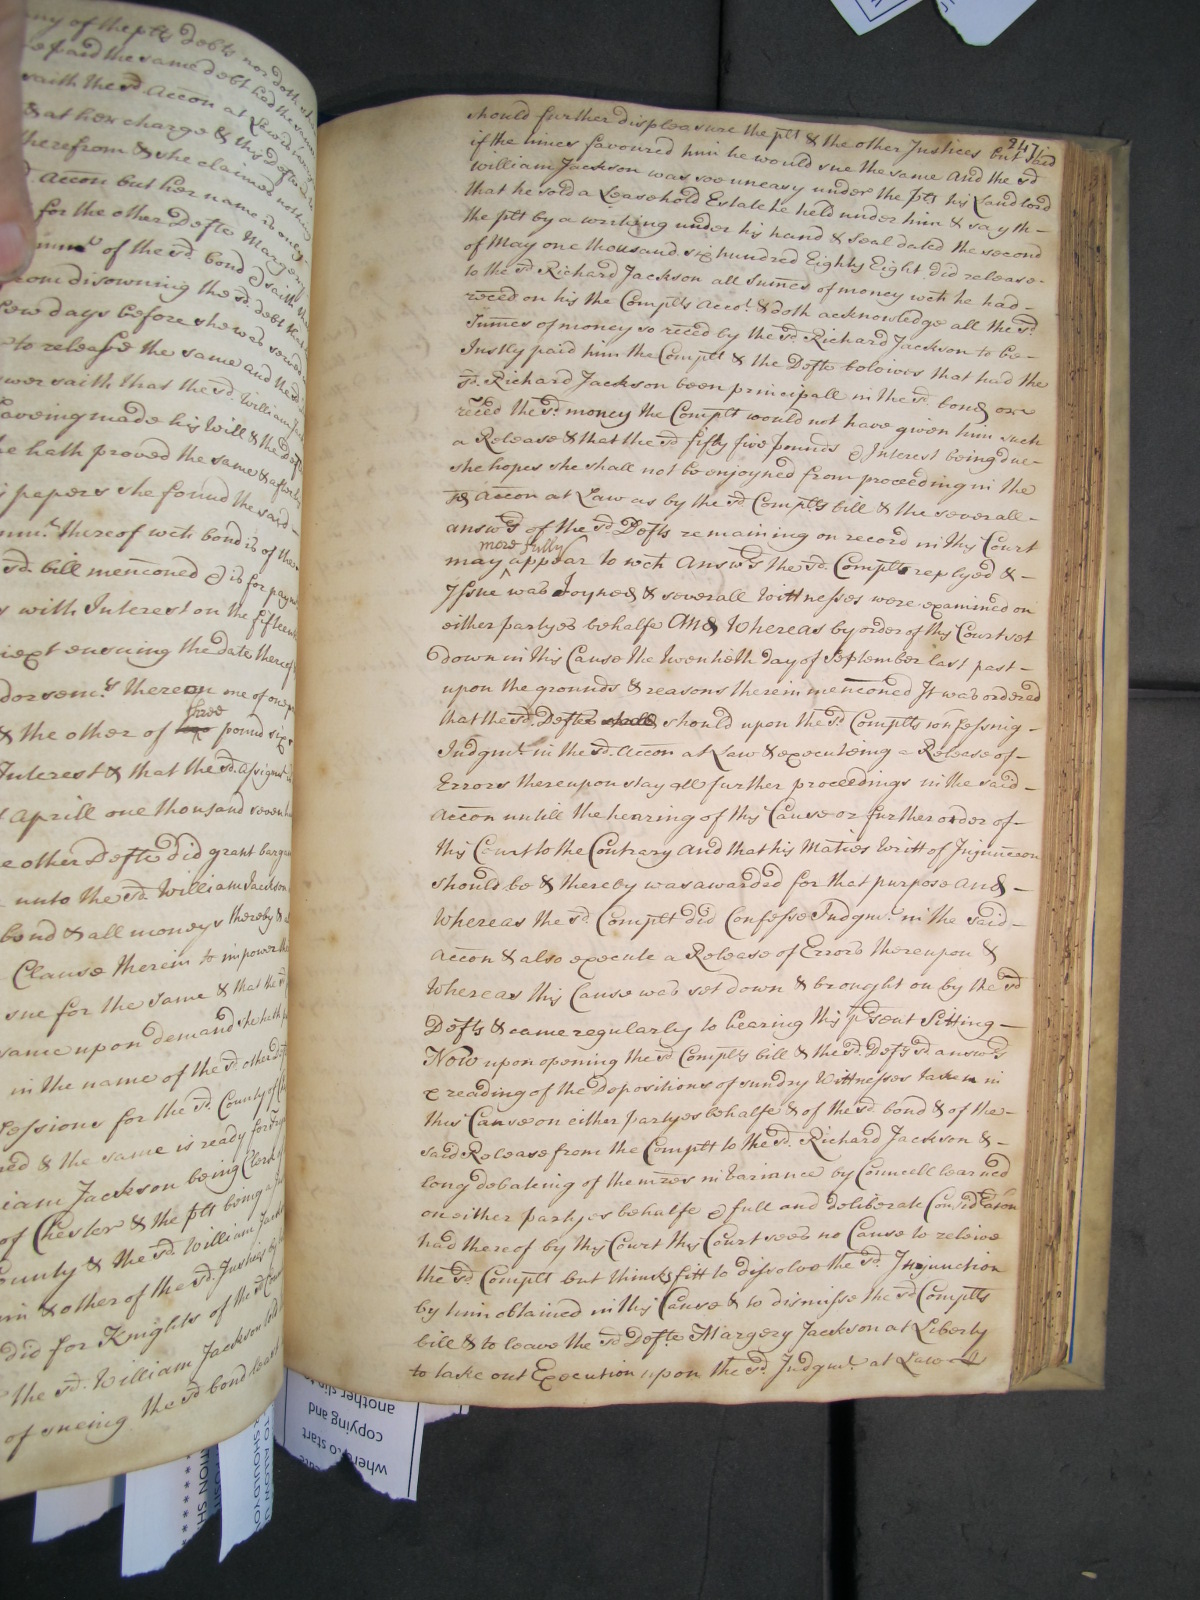 any of the plts debts nor doth
paid the same debt had the same
saith the sd. Accon at Law is
& at her charge & this Defte
therefrom & she claimes nothing
Accon but her name is only
for the other Defte Margery
of the sd. bond & saith
from disowning the sd. debt that
few days before she was served
to release the same and the
answer saith that the sd. William
haveing made his Will & the Defte
he hath proved the same & after
papers she found the said -
thereof wch bond is of the
sd. bill menconed & is for paym
with Interest on the fifteenth
next ensuing the date thereof
dorsemts. thereon me of one p
& the other of three pound six
Interest & that the sd. assignm
Aprill one thousand seven
other Defte did grant barga
unto the sd. William Jackson
bond & all moneys thereby
Clause therein to impower
sue for the same & that the
same upon demand she hath
in the name of the sd. other
Sessions for the sd. County of
& the same is ready for
William Jackson being Clerk
of Chester & the plt being a
County & the sd. William Jack
& other of the sd. Justices
did for Knights of the
the sd. William Jackson
of sueing the sd. bond least
247
should further displeasure the plt & the other Justices but said
if the times favoured him he would sue the same And the sd
William Jackson was soe uneasy under the plt his Landlord
that he sold a Leasehold Estate he held under him & say th-
the plt by a writing under his hand & Seal dated the second
of May one thousand six hundred Eighty Eight did release-
to the sd Richard Jackson all Summes of money wch he had-
reced on his the Complts Acco.t & doth acknowledge all the sd.
Summes of money so reced by the sd. Richard Jackson to be-
Justly paid him the Complt & the Defte beleives that had the
sd. Richard Jackson been principall in the sd. bond or
reced the sd. money the Complt would not have given him such
a Release & that the sd fifty five pounds & Interest being due-
she hopes she shall not be enjoyned from proceeding in the
sd Accon at Law as by the sd Complts bill & the severall-
answ.s of the sd. Defts remaining on record in this Court
more fully
may appear to wch Answ.s the sd. Complte replyed & -
Issue was Joyned & severall Wittnesses were examined on
either partyes behalfe And Whereas by order of this Court set
down in this Cause the twentieth day of September last past-
upon the grounds & reasons therein menconed It was ordered
that the sd. Defte shall should upon the sd Complts confessing-
Judgmt. in the sd. Accon at Law & executeing a Release of-
Errors thereupon stay all further proceedings in the said-
Accon untill the hearing of this Cause or further order of-
this Court to the Contrary And that his Maties Writt of Injunccon
should be & thereby was awarded for that purpose And-
Whereas the sd Complt did Confesse Judgmt. in the said-
Accon & also execute a Release of Errors thereupon &
Whereas this Cause was set down & brought on by the sd
Defts & came regularly to hearing this p'sent Sitting-
Now upon opening the sd Complts bill & the sd. Defts sd. answ.s
& reading of the Depositions of sundry Wittnesses taken in
this Cause on either partyes behalfe & of the sd. bond & of the-
said Release from the Complt to the sd. Richard Jackson & -
long debateing of the mres in Variance by Councell learned
on either partyes behalfe & full and deliberate Considracon
had thereof by this Court this Court sees no Cause to releive
the sd. Complt but thinks fitt to dissolve the sd. Injunction
by him obtained in this Cause & to dismisse the sd Complts
bill & to leave the sd Defte Margery Jackson at Liberty
to take out Execution upon the sd. Judgmt. at Law
another
copying and
to start